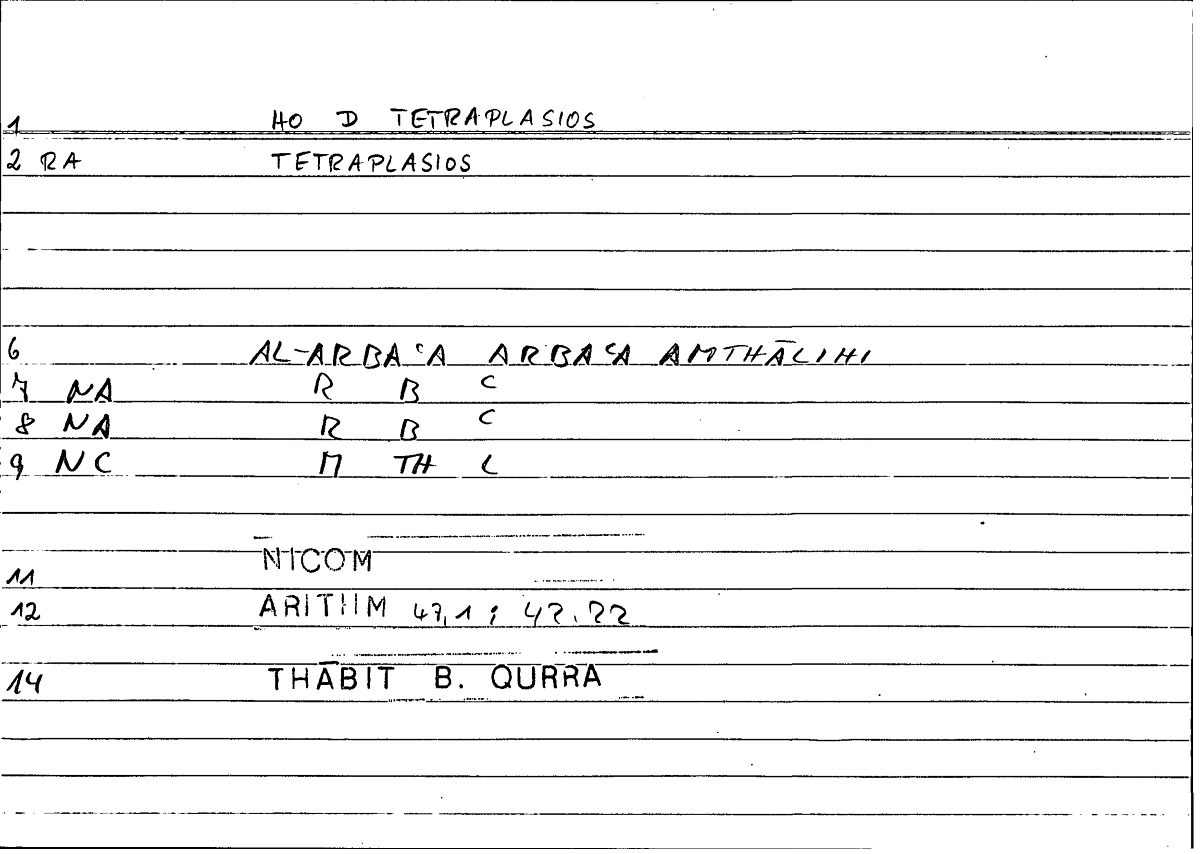 1 HO D TETRAPLASIOS
2 RA TETRAPLASIOS
6 AL-ARBAʿA ARBAʿA AMTHĀLIHI
7 NA R B C
8 NA R B C
9 NC M TH L
NICOM
11
12 ARITHM 47,1 ; 42.22
14 THĀBIT B. QURRA